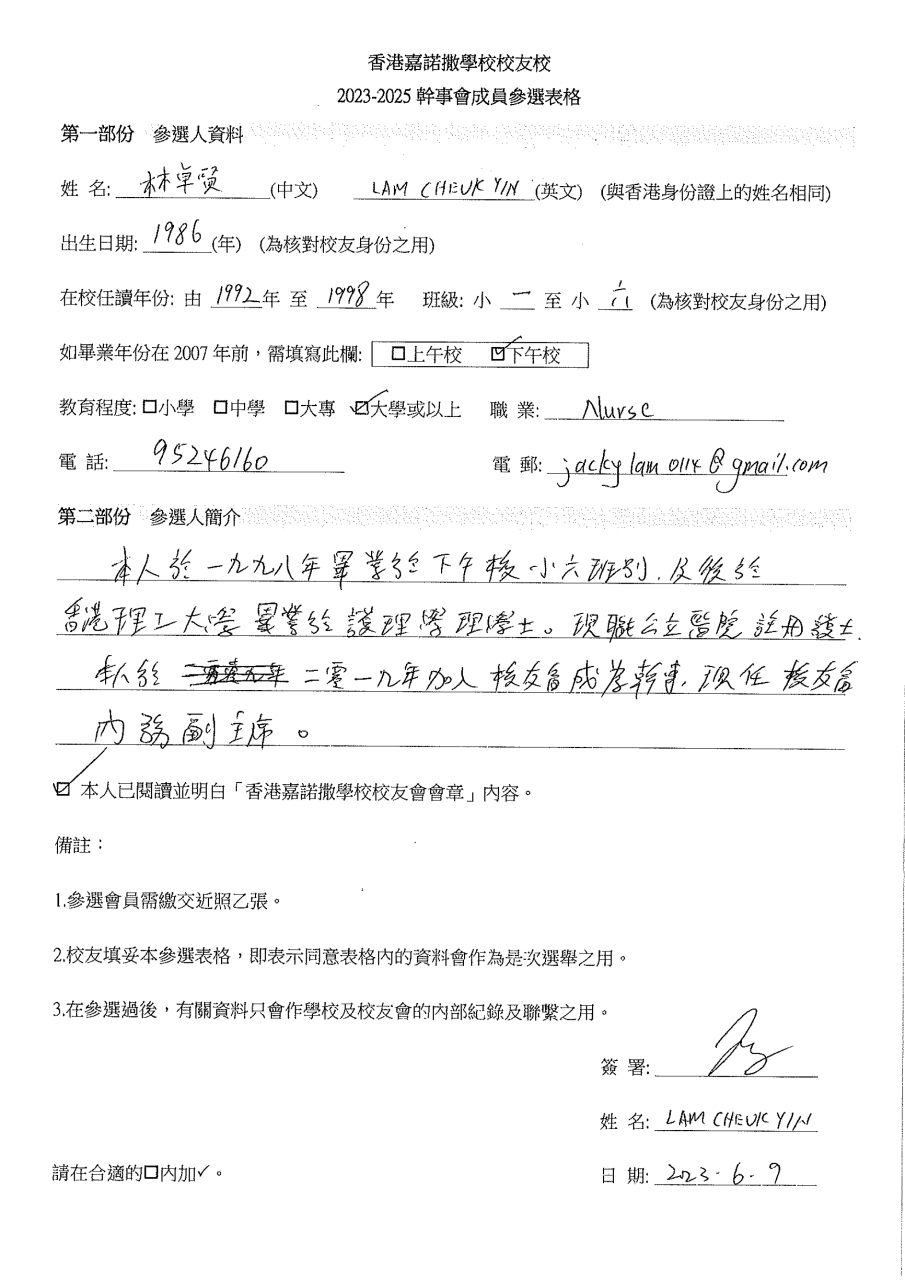 香港嘉諾撒學校校友校
2023-2025 幹事會成員參選表格
第一部份 參選人資料
姓 名: 林卓賢 (中文) LAM CHEUK YIN (英文) (與香港身份證上的姓名相同)
出生日期: 1986 (年) (為核對校友身份之用)
在校任讀年份: 由 1992 年 至 1998 年 班級: 小 一 至 小 六 (為核對校友身份之用)
如畢業年份在 2007 年前，需填寫此欄: □上午校 ☑下午校
教育程度: □小學 □中學 □大專 ☑大學或以上 職 業: Nurse
電 話: 95246160 電 郵: jackylam0114@gmail.com
第二部份 參選人簡介
本人於一九九八年畢業於下午校小六班別，及後於
香港理工大學畢業於護理學理學士。現職公立醫院註冊護士.
本人於 二零一九年加入校友會成為幹事，現任校友會
內務副主席。
☑ 本人已閱讀並明白「香港嘉諾撒學校校友會會章」內容。
備註：
1.參選會員需繳交近照乙張。
2.校友填妥本參選表格，即表示同意表格內的資料會作為是次選舉之用。
3.在參選過後，有關資料只會作學校及校友會的內部紀錄及聯繫之用。
簽 署:
姓 名: LAM CHEUK YIN
請在合適的□內加✓。 日 期: 2023-6-9